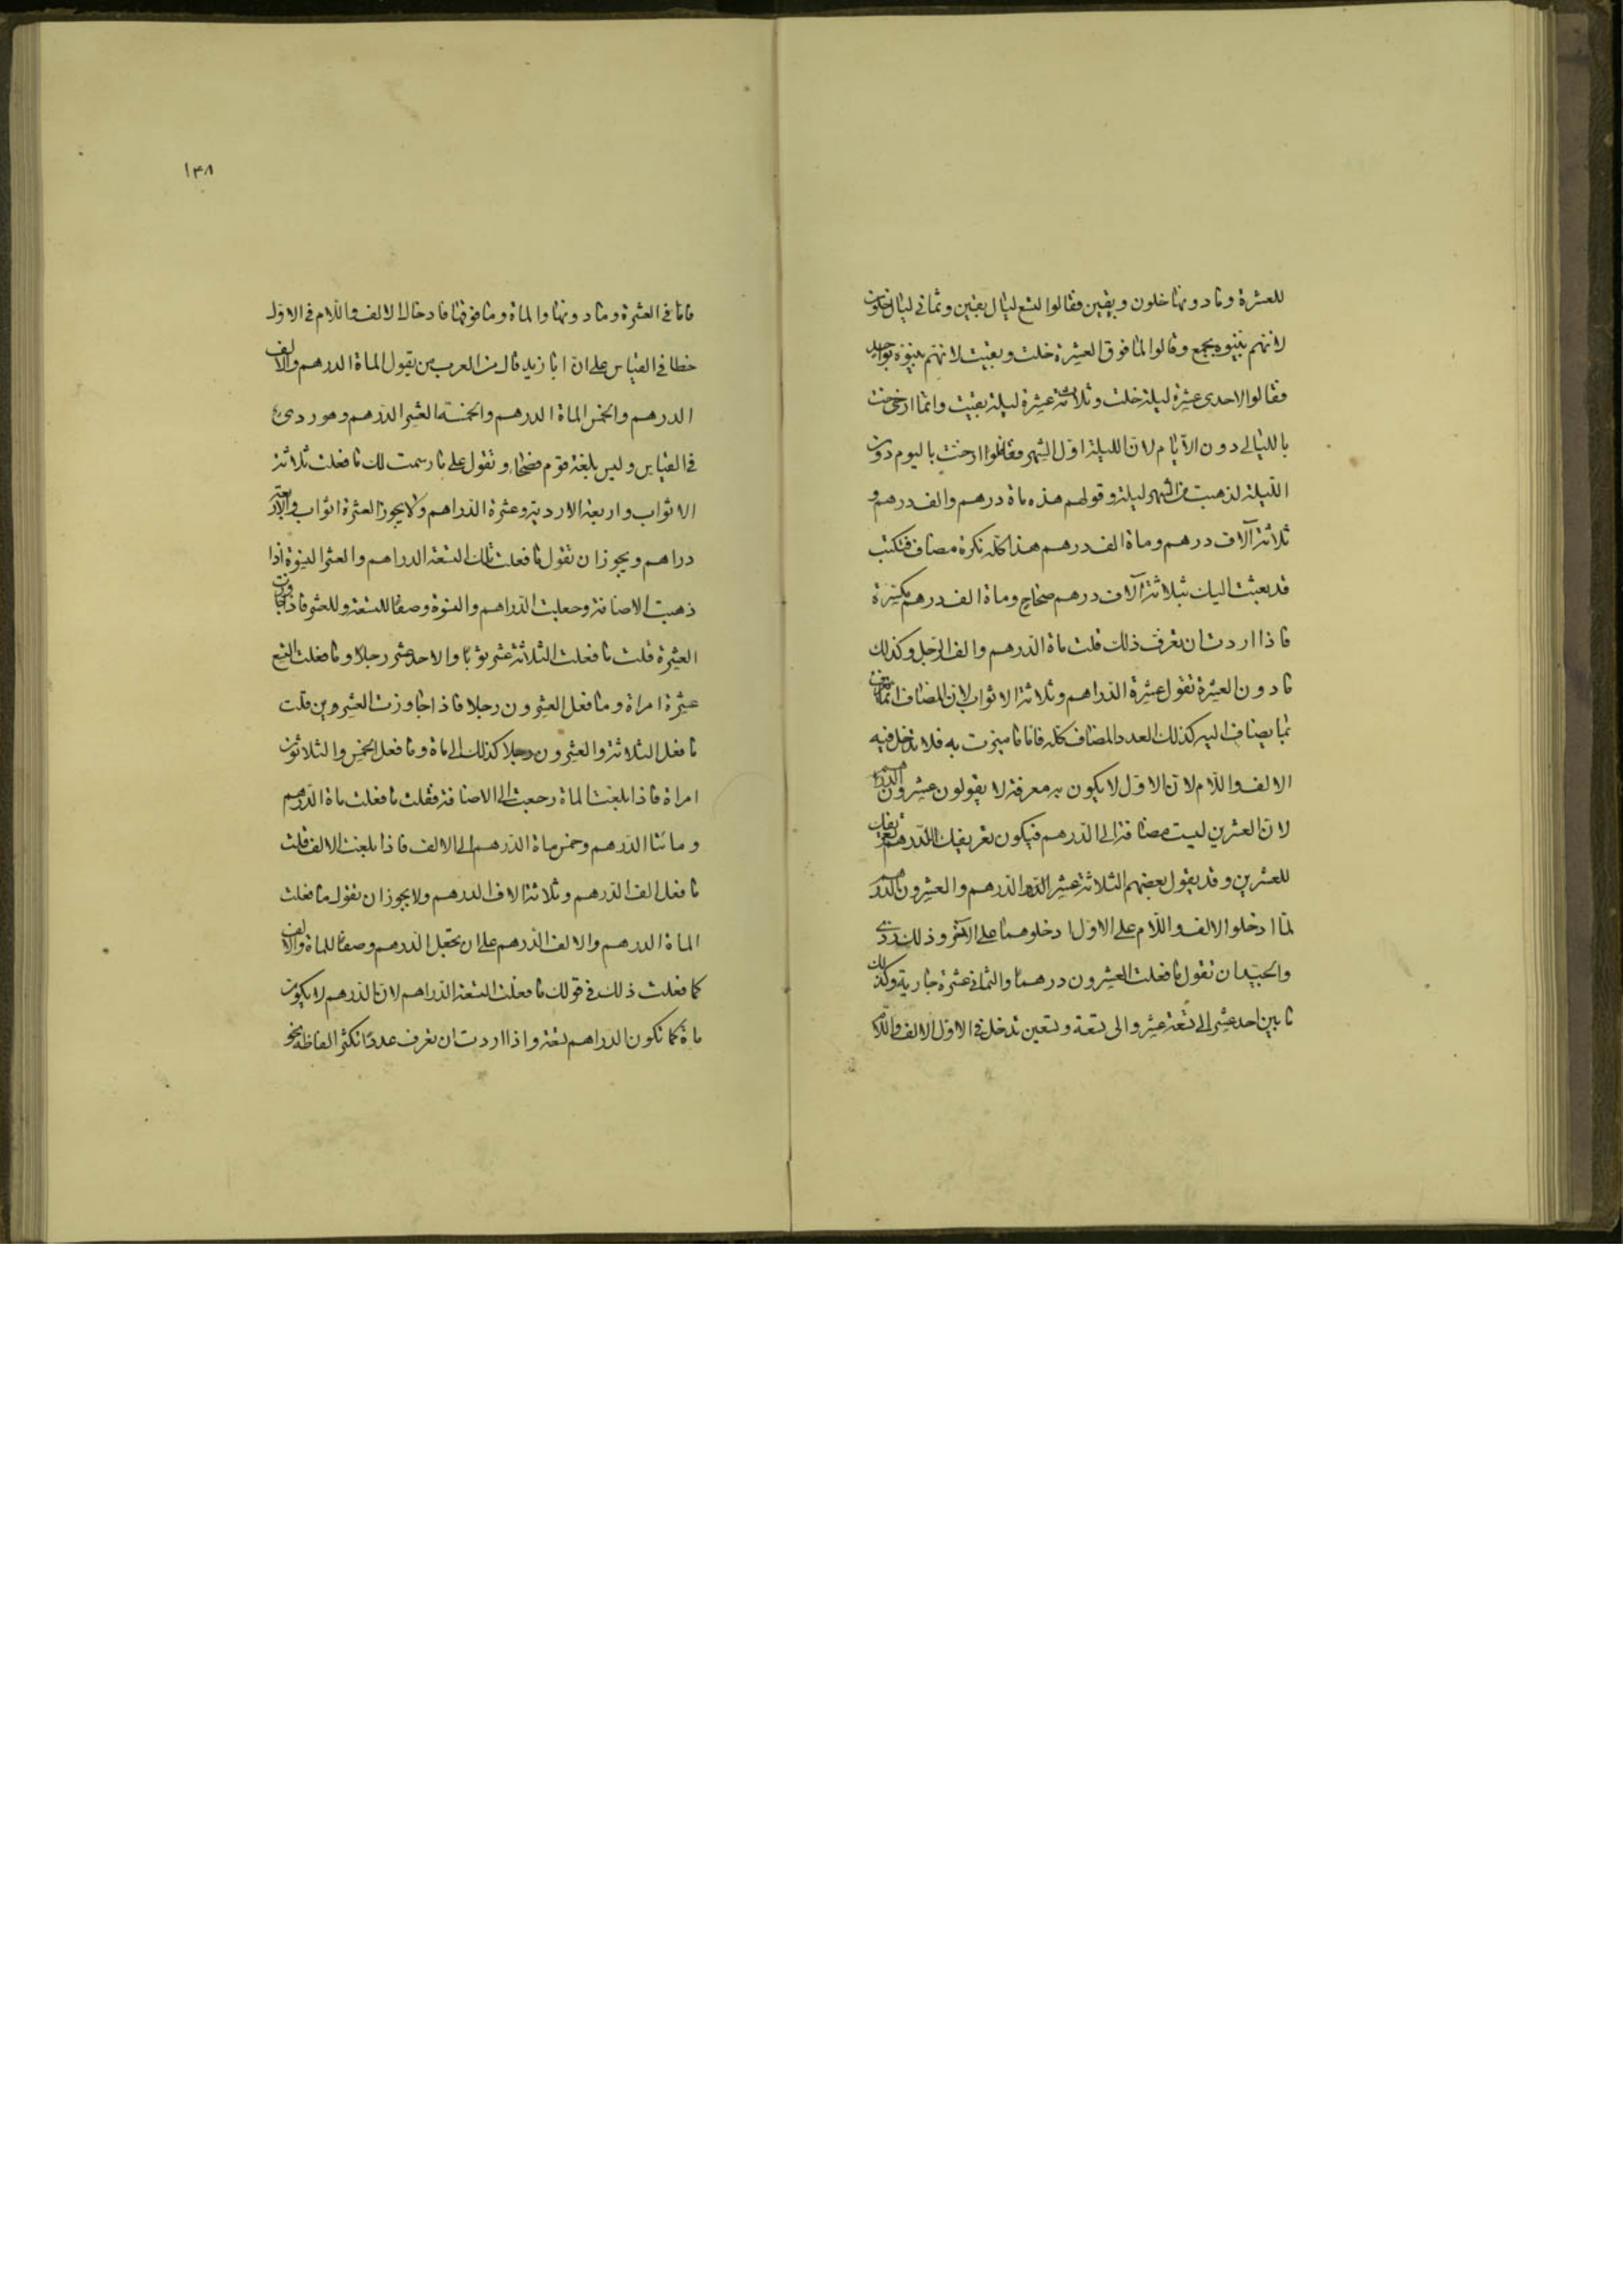 للعشرة وما دونها خلون وبقين فقالوا لتسع ليال بقين وثماني ليال خلون
لانهم بينوه بجمع وقالوا لما فوق العشرة خلت وبقيت لانهم بينوه بواحد
فقالوا لاحدى عشرة ليلة خلت وثلاث عشرة ليلة بقيت وانما ارخت
بالليالي دون الايام لان الليلة اول الشهر فلو ارخت باليوم دون
الليلة لذهبت من الشهر ليلة وقولهم هذه ماة درهم والف درهم و
ثلاثة آلاف درهم وماة الف درهم هذا كله نكرة مضاف فتكتب
قد بعثت اليك بثلاثة آلاف درهم صحاح وماة الف درهم مكسرة
فاذا اردت ان تعرف ذلك قلت ماة الدرهم والف الرجل وكذلك
ما دون العشرة تقول عشرة الدراهم وثلاثة الاثواب لان المضاف انما يعرف
بما يضاف اليه كذلك العدد المضاف كله فاما ما ميزت به فلا تدخل فيه
الالف واللام لان الاول لا يكون به معرفة لا يقولون عشرون الدرهم
لان العشرين ليست مضافة الى الدرهم فيكون تعريفك للدرهم تعريفك
للعشرين وقد يقول بعضهم الثلاثة عشر الدرهم والعشرون الدرهم
لما ادخلوا الالف واللام على الاول ادخلوهما على الآخر وذلك ردى
والجيد ان تقول ما فعلت العشرون درهما والثماني عشرة جارية وكذلك
ما بين احد عشر الى تسعة عشر والى تسعة وتسعين تدخل في الاول الالف واللام
١٣٨
فاما في العشرة وما دونها والماة وما فوقها فادخال الالف واللام في الاول
خطا في القياس على ان ابا زيد قال من العرب من يقول الماة الدرهم والالف
الدرهم والخمس الماة الدرهم والخمسة العشر الدرهم وهو ردئ
في القياس وليس بلغة قوم فصحاء وتقول على ما رسمت لك ما فعلت ثلاثة
الاثواب واربعة الاردية وعشرة الدراهم ولا يجوز العشرة اثواب والاربعة
دراهم ويجوز ان تقول ما فعلت تلك التسعة الدراهم والعشر النسوة اذا
ذهبت الاضافة وجعلت الدراهم والنسوة وصفا للتسعة وللعشر فاذا جاوزت
العشرة قلت ما فعلت الثلاثة عشر ثوبا والاحد عشر رجلا وما فعلت التسع
عشرة امراة وما فعل العشرون رجلا فاذا جاوزت العشرين قلت
ما فعل الثلاثة والعشرون رجلا كذلك الى ماة وما فعل الخمس والثلاثون
امراة فاذا بلغت الماة رجعت الى الاضافة فقلت ما فعلت ماة الدرهم
ومائتا الدرهم وخمس ماة الدرهم الى الالف فاذا بلغت الالف قلت
ما فعل الف الدرهم وثلاثة الاف الدرهم ولا يجوز ان تقول ما فعلت
الماة الدرهم والالف الدرهم على ان يجعل الدرهم وصفا للماة والالف
كما فعلت ذلك في قولك ما فعلت التسعة الدراهم لان الدرهم لا يكون
ماة كما تكون الدراهم تسعة واذا اردت ان تعرف عددا تكثر الفاظه نحو